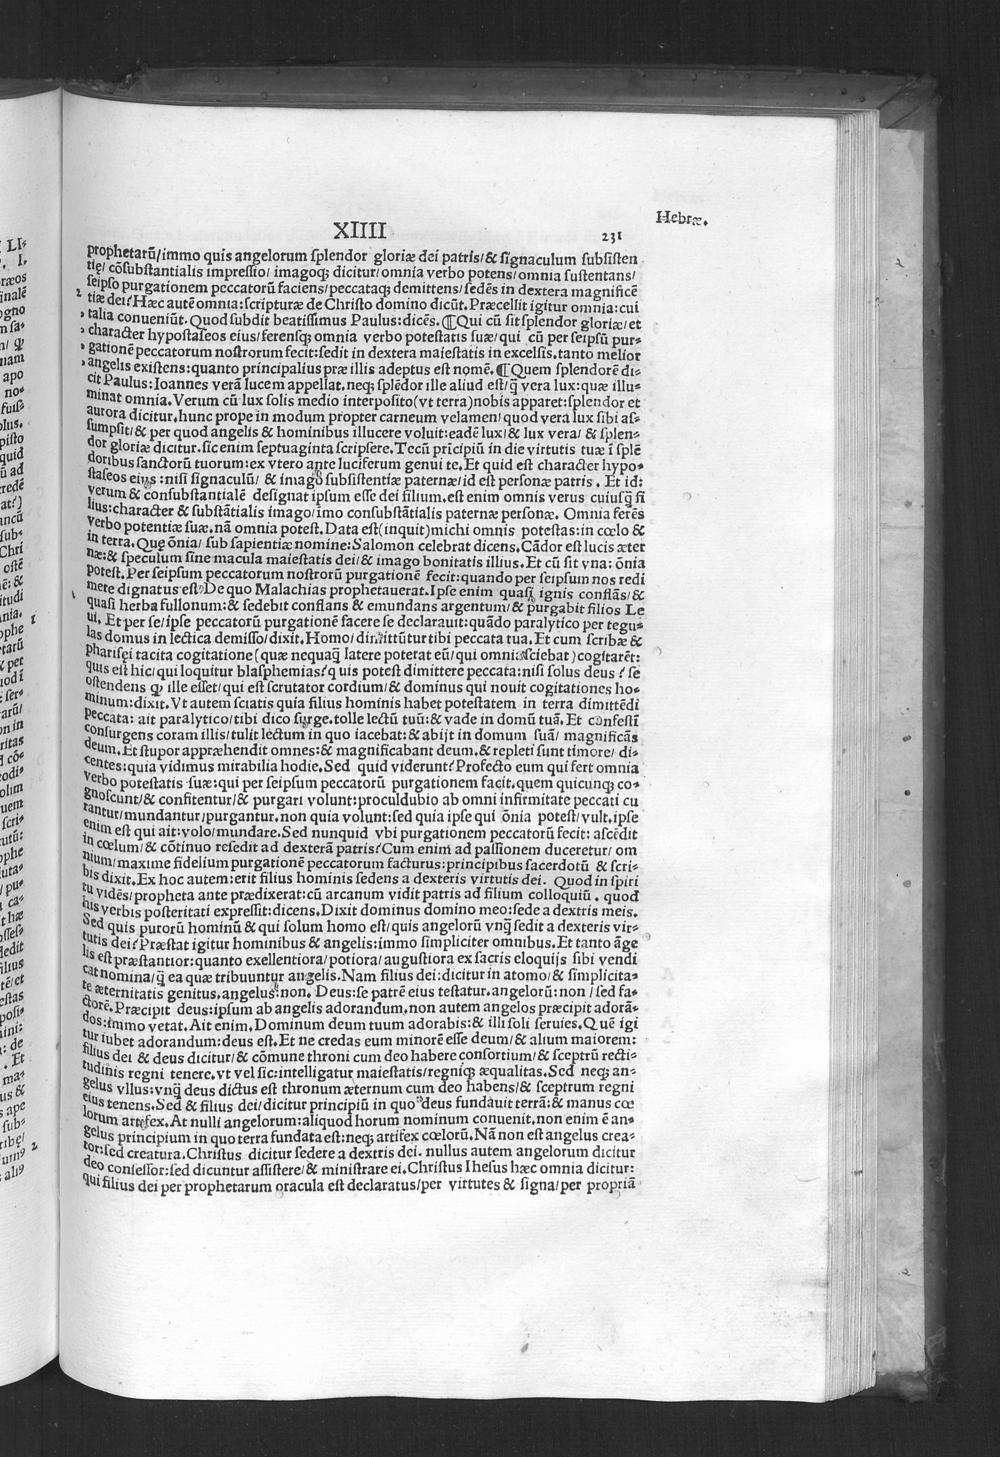 Hebræ.
XIIII
231
prophetarũ/immo quis angelorum splendor gloriæ dei patris/& signaculum subsisten
tię/ cõsubstantialis impressio/ imagoq; dicitur/omnia verbo potens/omnia sustentans/
seipso purgationem peccatorũ faciens/peccataq; demittens/sedẽs in dextera magnificẽ
2 tiæ dei? Hæc autẽ omnia:scripturæ de Christo domino dicũt. Præcellit igitur omnia:cui
talia conueniũt. Quod subdit beatissimus Paulus:dicẽs. ¶Qui cũ sit splendor gloriæ/et
character hypostaseos eius/ferensq; omnia verbo potestatis suæ/qui cũ per seipsũ pur-
gationẽ peccatorum nostrorum fecit:sedit in dextera maiestatis in excelsis.tanto melior
angelis existens:quanto principalius præ illis adeptus est nomẽ. ¶Quem splendorẽ di-
cit Paulus:Ioannes verã lucem appellat.neq; splẽdor ille aliud est/q̃ vera lux:quæ illu-
minat omnia. Verum cũ lux solis medio interposito(vt terra)nobis apparet:splendor et
aurora dicitur.hunc prope in modum propter carneum velamen/quod vera lux sibi as-
sumpsit/& per quod angelis & hominibus illucere voluit:eadẽ lux/& lux vera/ & splen-
dor gloriæ dicitur.sic enim septuaginta scripsere. Tecũ prĩcipiũ in die virtutis tuæ ĩ splẽ
doribus sanctorũ tuorum:ex vtero ante luciferum genui te. Et quid est character hypo-
staseos eius :nisi signaculũ/ & imago subsistentiæ paternæ/id est personæ patris . Et id:
verum & consubstantialẽ designat ipsum esse dei filium.est enim omnis verus cuiusq̃ fi
lius:character & substãtialis imago/imo consubstãtialis paternæ personæ. Omnia ferẽs
verbo potentiæ suæ.nã omnia potest. Data est(inquit)michi omnis potestas:in cœlo &
in terra. Quę õnia/ sub sapientiæ nomine:Salomon celebrat dicens. Cãdor est lucis æter
næ:& speculum sine macula maiestatis dei/& imago bonitatis illius. Et cũ sit vna: õnia
potest. Per seipsum peccatorum nostrorũ purgationẽ fecit:quando per seipsum nos redi
mere dignatus est. De quo Malachias prophetauerat. Ipse enim quasi ignis conflãs/&
quasi herba fullonum:& sedebit conflans & emundans argentum/& purgabit filios Le
ui. Et per se/ipse peccatorũ purgationẽ facere se declarauit:quãdo paralytico per tegu-
las domus in lectica demisso/dixit. Homo/dimittũtur tibi peccata tua. Et cum scribæ &
pharisęi tacita cogitatione (quæ nequaq̃ latere poterat eũ/qui omnia sciebat)cogitarẽt:
quis est hic/qui loquitur blasphemias?quis potest dimittere peccata:nisi solus deus ? se
ostendens ꝙ ille esset/qui est scrutator cordium/& dominus qui nouit cogitationes ho-
minum:dixit. Vt autem sciatis quia filius hominis habet potestatem in terra dimittẽdi
peccata: ait paralytico/tibi dico surge.tolle lectũ tuũ:& vade in domũ tuã. Et confestĩ
consurgens coram illis/tulit lectum in quo iacebat:& abijt in domum suã/ magnificãs
deum. Et stupor appræhendit omnes:& magnificabant deum.& repleti sunt timore/ di-
centes:quia vidimus mirabilia hodie. Sed quid viderunt? Profecto eum qui fert omnia
verbo potestatis suæ:qui per seipsum peccatorũ purgationem facit.quem quicunq; co-
gnoscunt/& confitentur/& purgari volunt:proculdubio ab omni infirmitate peccati cu
rantur/mundantur/purgantur.non quia volunt:sed quia ipse qui õnia potest/vult.ipse
enim est qui ait:volo/mundare. Sed nunquid vbi purgationem peccatorũ fecit: ascẽdit
in cœlum/& cõtinuo resedit ad dexterã patris? Cum enim ad passionem duceretur/ om
nium/maxime fidelium purgationẽ peccatorum facturus:principibus sacerdotũ & scri-
bis dixit. Ex hoc autem:erit filius hominis sedens a dexteris virtutis dei. Quod in spiri
tu vidẽs/propheta ante prædixerat:cũ arcanum vidit patris ad filium colloquiũ . quod
his verbis posteritati expressit:dicens. Dixit dominus domino meo:sede a dextris meis.
Sed quis purorũ hominũ & qui solum homo est/quis angelorũ vnq̃ sedit a dexteris vir-
tutis dei? Præstat igitur hominibus & angelis:immo simpliciter omnibus. Et tanto ãge
lis est præstantior:quanto exellentiora/potiora/augustiora ex sacris eloquijs sibi vendi
cat nomina/q̃ ea quæ tribuuntur angelis. Nam filius dei:dicitur in atomo/& simplicita-
te æternitatis genitus.angelus:non. Deus:se patrẽ eius testatur.angelorũ:non / sed fa-
ctorẽ. Præcipit deus:ipsum ab angelis adorandum.non autem angelos præcipit adorã-
dos:immo vetat. Ait enim. Dominum deum tuum adorabis:& illi soli seruies. Quẽ igi
tur iubet adorandum:deus est. Et ne credas eum minorẽ esse deum/& alium maiorem:
filius dei & deus dicitur/& cõmune throni cum deo habere consortium/& sceptrũ recti-
tudinis regni tenere.vt vel sic:intelligatur maiestatis/regniq; æqualitas. Sed neq; an-
gelus vllus:vnq̃ deus dictus est thronum æternum cum deo habens/& sceptrum regni
eius tenens. Sed & filius dei/dicitur principiũ in quo deus fundauit terrã:& manus cœ
lorum artifex. At nulli angelorum:aliquod horum nominum conuenit.non enim ẽ an-
gelus principium in quo terra fundata est:neq; artifex cœlorũ. Nã non est angelus crea-
tor:sed creatura. Christus dicitur sedere a dextris dei. nullus autem angelorum dicitur
deo consessor:sed dicuntur assistere/& ministrare ei. Christus Ihesus hæc omnia dicitur:
qui filius dei per prophetarum oracula est declaratus/per virtutes & signa/per propriã